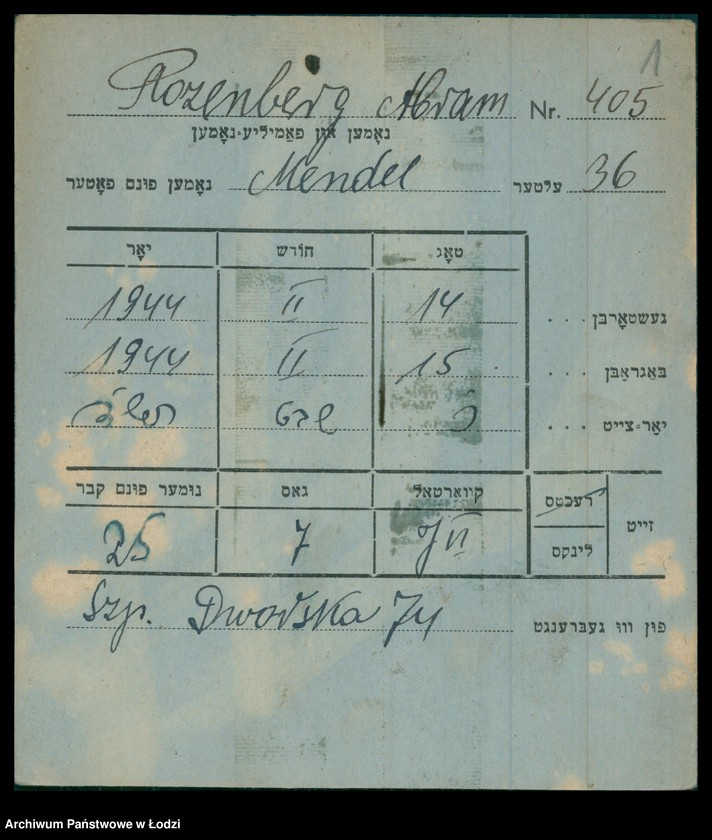 1
Rozenberg Abram Nr. 405
נאָמען און פאַמיליע־נאָמען
נאָמען פונם פאָטער Mendel עלטער 36
יאָר חודש טאָג
1944 II 14 געשטאָרבן . . .
1944 II 15 באַגראָבן . . .
שבט כ יאָר־צייט . . .
נומער פונם קבר גאס קיוואַרטאל רעכטס זייט
25 7 לינקס
Szp. Dworska 74 פון וווּ געברענגט
Archiwum Państwowe w Łodzi